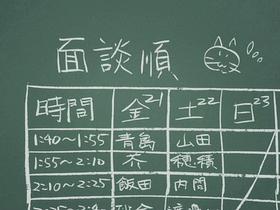 面談順
時間 金21 土22 日23
1:40～1:55 青島 山田
1:55～2:10 芥 穂積
2:10～2:25 飯田 内間